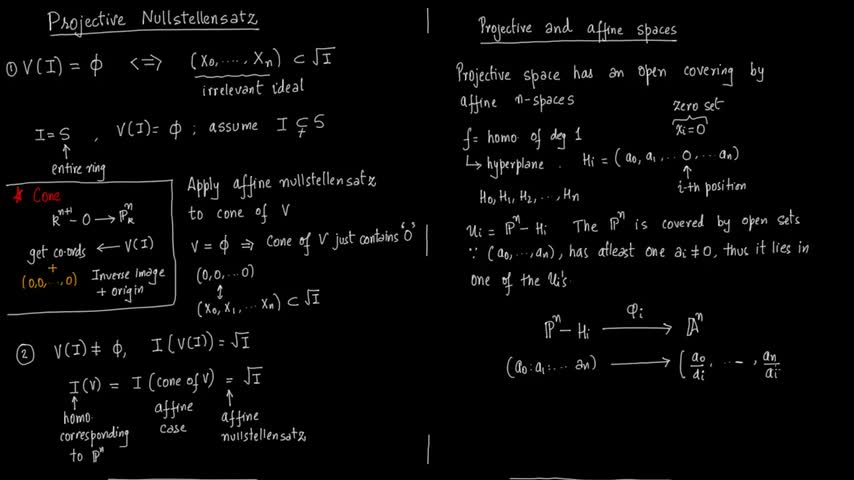 Projective Nullstellensatz
① V(I) = ϕ <=> (X₀, ..., Xₙ) ⊂ √I
irrelevant ideal
I = S, V(I) = ϕ ; assume I ⊊ S
↑
entire ring
* Cone
kⁿ⁺¹ - 0 → ℙⁿₖ
get co-ords ← V(I)
+
(0,0,...,0) Inverse image + origin
Apply affine nullstellensatz
to cone of V
V = ϕ ⇒ Cone of V just contains '0'
(0,0,...0)
↕
(X₀, X₁, ... Xₙ) ⊂ √I
② V(I) ≠ ϕ, I(V(I)) = √I
I(V) = I(cone of V) = √I
homo corresponding to ℙⁿ
affine case
affine nullstellensatz
Projective and affine spaces
Projective space has an open covering by
affine n-spaces
zero set
xᵢ=0
f = homo of deg 1
↳ hyperplane. Hᵢ = (a₀, a₁, ... 0, ... aₙ)
i-th position
H₀, H₁, H₂, ..., Hₙ
Uᵢ = ℙⁿ - Hᵢ The ℙⁿ is covered by open sets
∵ (a₀, ..., aₙ), has atleast one aᵢ ≠ 0, thus it lies in
one of the Uᵢ's.
ℙⁿ - Hᵢ —φᵢ→ 𝔸ⁿ
(a₀: a₁: ... aₙ) → (a₀/aᵢ, ... , aₙ/aᵢ